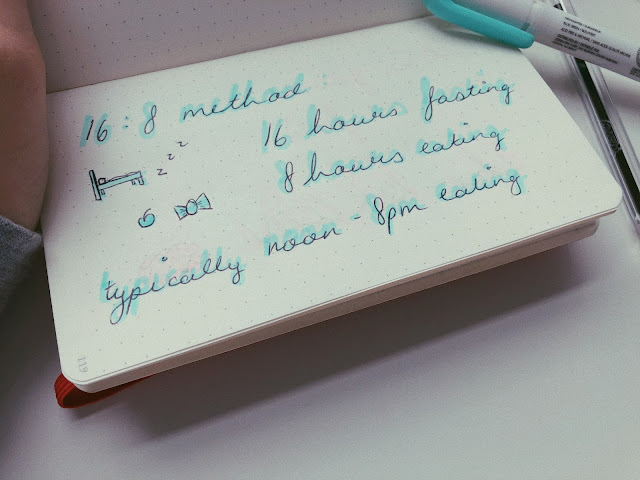 16:8 method
z z z
16 hours fasting
8 hours eating
typically noon - 8pm eating
119